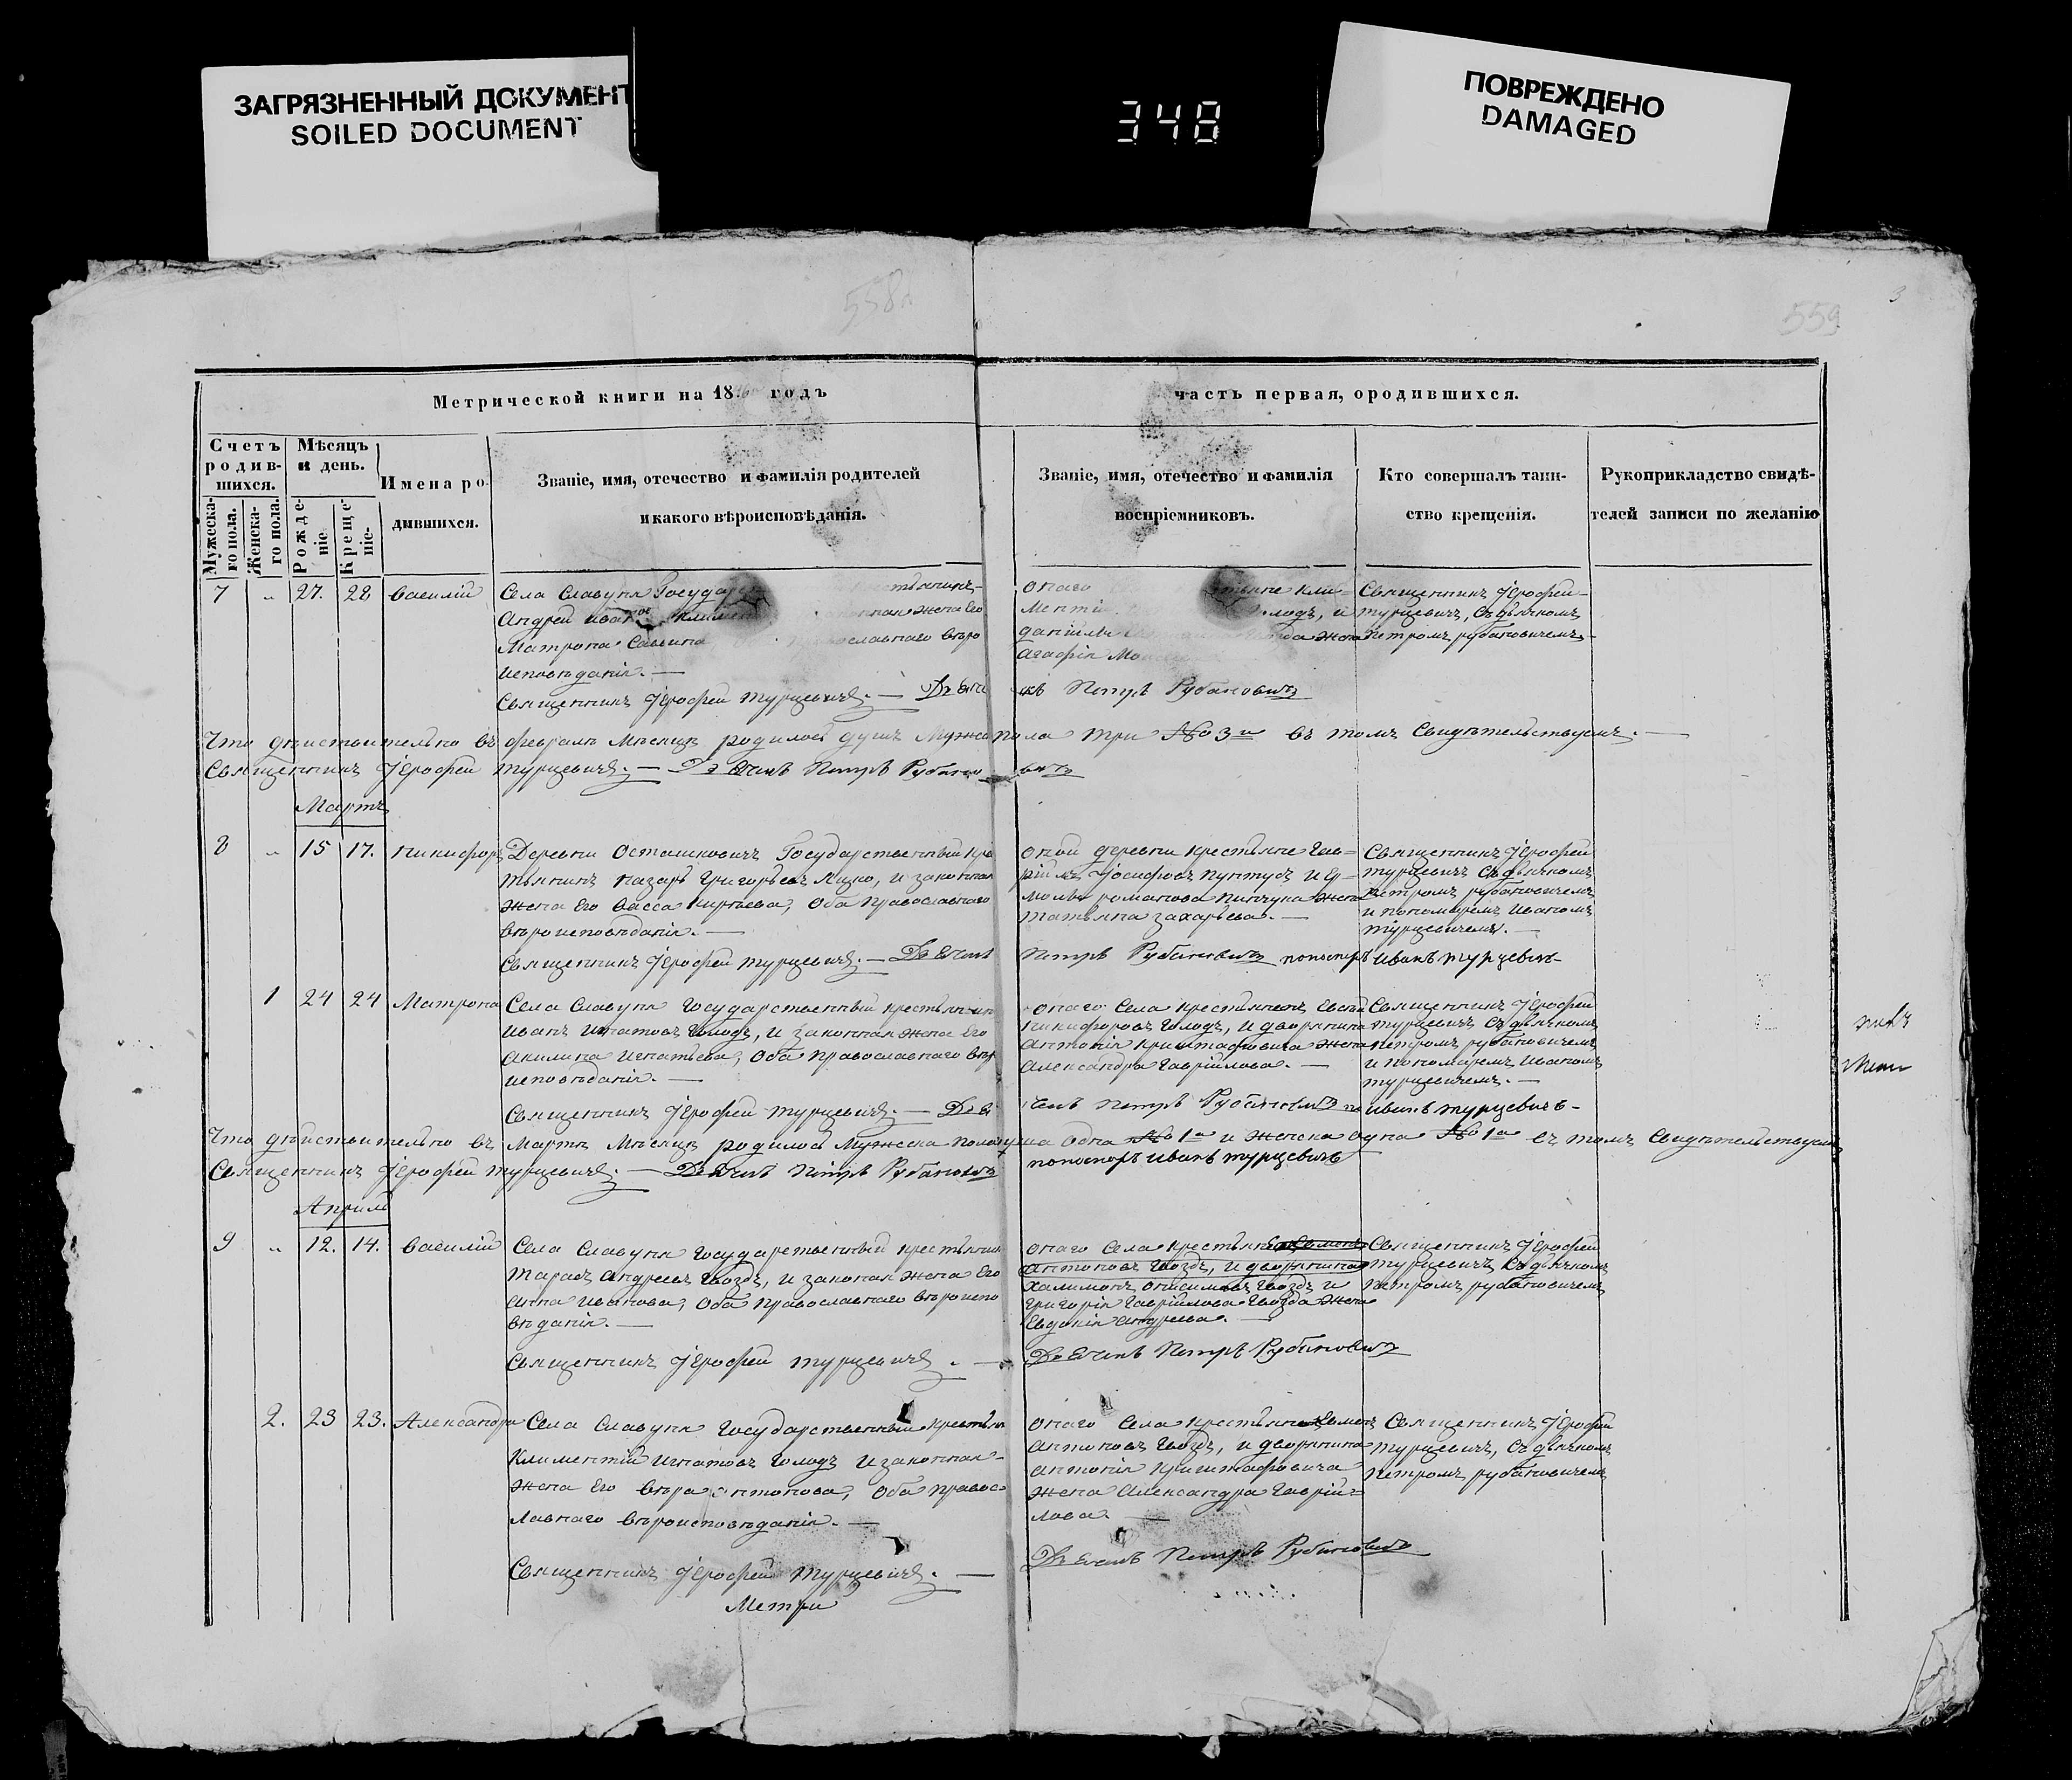 ЗАГРЯЗНЕННЫЙ ДОКУМЕНТ
SOILED DOCUMENT
348
ПОВРЕЖДЕНО
DAMAGED
558
559
3
Метрической книги на 18 годъ
часть первая, ородившихся.
Счетъ родив-шихся.
Мужеска-го пола.
Женска-го пола.
Мѣсяцъ и день.
Рожде-ніе.
Креще-ніе.
Имена ро-дившихся.
Званіе, имя, отечество и фамилія родителей
и какого вѣроисповѣданія.
Званіе, имя, отечество и фамилія
воспріемниковъ.
Кто совершалъ таин-
ство крещенія.
Рукоприкладство свидѣ-
телей записи по желанію
7 " 27. 28 Василій
Села Славуня
Андрей жена Его
Матрона православнаго вѣро
исповѣданія. —
Священникъ Іерофей Турцевичъ. —
онаго Кли-
жена
Агафія
Петръ Рубановичъ
Священникъ Іерофей
Турцевичъ, Съ дьячкомъ
Петромъ Рубановичемъ
Что дѣйствительно въ февралѣ Мѣсяцѣ родилось душъ Мужеска пола три № 3й въ томъ Свидѣтельствуемъ. —
Священникъ Іерофей Турцевичъ. — Дьячокъ Петръ Рубановичъ
Мартъ
8 " 15 17. Никифоръ
Деревни Осташковичъ Государственный Кре
стьянинъ Назаръ Григорьевъ Яцко, и законная
жена Его Васса Кирѣева, Оба Православнаго
вѣроисповѣданія. —
Священникъ Іерофей Турцевичъ. —
оной деревни крестьяне Гав-
Іосифовъ Пунтусъ и Ер-
молы романова Пинчука жена
Татьяна Захарьева. —
Петръ Рубановичъ пономаръ Иванъ Турцевичъ
Священникъ Іерофей
Турцевичъ Съ дьячкомъ
Петромъ Рубановичемъ
и пономаремъ Иваномъ
Турцевичемъ. —
1 24 24 Матрона
Села Славуня Государственный крестьянинъ
Иванъ Игнатовъ Голодъ, и законная жена Его
Акилина Игнатьева, Оба Православнаго вѣро
исповѣданія. —
Священникъ Іерофей Турцевичъ. —
онаго Села крестьянинъ
Никифоровъ Голодъ, и дворянина
Антонія Криштафовича жена
Александра Гавріилова. —
Петръ Рубановичъ
Иванъ Турцевичъ
Священникъ Іерофей
Турцевичъ Съ дьячкомъ
Петромъ Рубановичемъ
и пономаремъ Иваномъ
Турцевичемъ. —
Что дѣйствительно въ Мартѣ Мѣсяцѣ родилось Мужеска пола душа одна № 1й и Женска одна № 1й въ томъ Свидѣтельствуемъ
Священникъ Іерофей Турцевичъ. — Дьячокъ Петръ Рубановичъ
пономаръ Иванъ Турцевичъ
Апрель
9 " 12. 14. Василій
Села Славуня Государственный крестьянинъ
Тарасъ Андреевъ Гвоздь, и законная жена Его
Анна Иванова, Оба Православнаго вѣроиспо
вѣданія. —
Священникъ Іерофей Турцевичъ. —
онаго Села крестьяне
Антоновъ Гвоздь, и дворянина
Халимонъ Онисимовъ Гвоздь и
Григорія Гавріилова Гвозда жена
Евдокія Андреева. —
Дьячокъ Петръ Рубановичъ
Священникъ Іерофей
Турцевичъ Съ дьячкомъ
Петромъ Рубановичемъ
2. 23 23. Александра
Села Славуня Государственный крестьян
Климентій Игнатовъ Голодъ и законная
жена Его Вѣра Антонова, Оба Правос-
лавнаго вѣроисповѣданія. —
Священникъ Іерофей Турцевичъ. —
онаго Села крестьяне
Антоновъ Гвоздь, и дворянина
Антонія Криштафовича
жена Александра Гаврій-
лова. —
Дьячокъ Петръ Рубановичъ
Священникъ Іерофей
Турцевичъ, Съ дьячкомъ
Петромъ Рубановичемъ
Метри